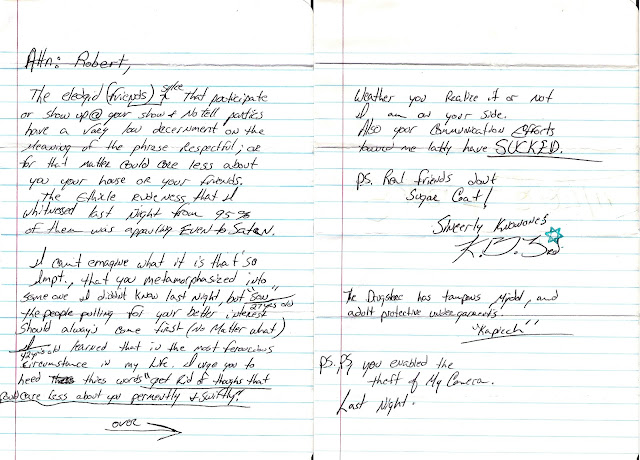 Attn: Robert,
The eledgid (friends) That participate
or show up @ your show & No tell parties
have a very low decernment on the
Meaning of the phrase Respectful, or
for that matter Could Care less about
you your house or your friends.
The Ethicle rudeness that I
whitnessed last Night from 95%
of them was appauling EVEN to Satan.
I can't emagine what it is that so
Impt., that you metamorphasized into
someone I didn't know last Night, but "SAW"
27yrs old
the people pulling for your better interest
Should always come first (No Matter what)
I learned that in the most ferocious
42yrs old
Circumstance in my life. I urge you to
heed thies words "get Rid of thoughs that
Could care less about you permently & Swiftly."
over
Weather you Realize it or Not
I am on your side.
Also your Communication Efforts
toward me latly have SUCKED.
PS. Real friends don't
Sugar Coat!
Sincerly Knowones
The Drugstore has tampons, Mydol, and
adult protective undergarments.
"Kapiech"
PS. PS you enabled the
theft of My Camera.
Last Night.